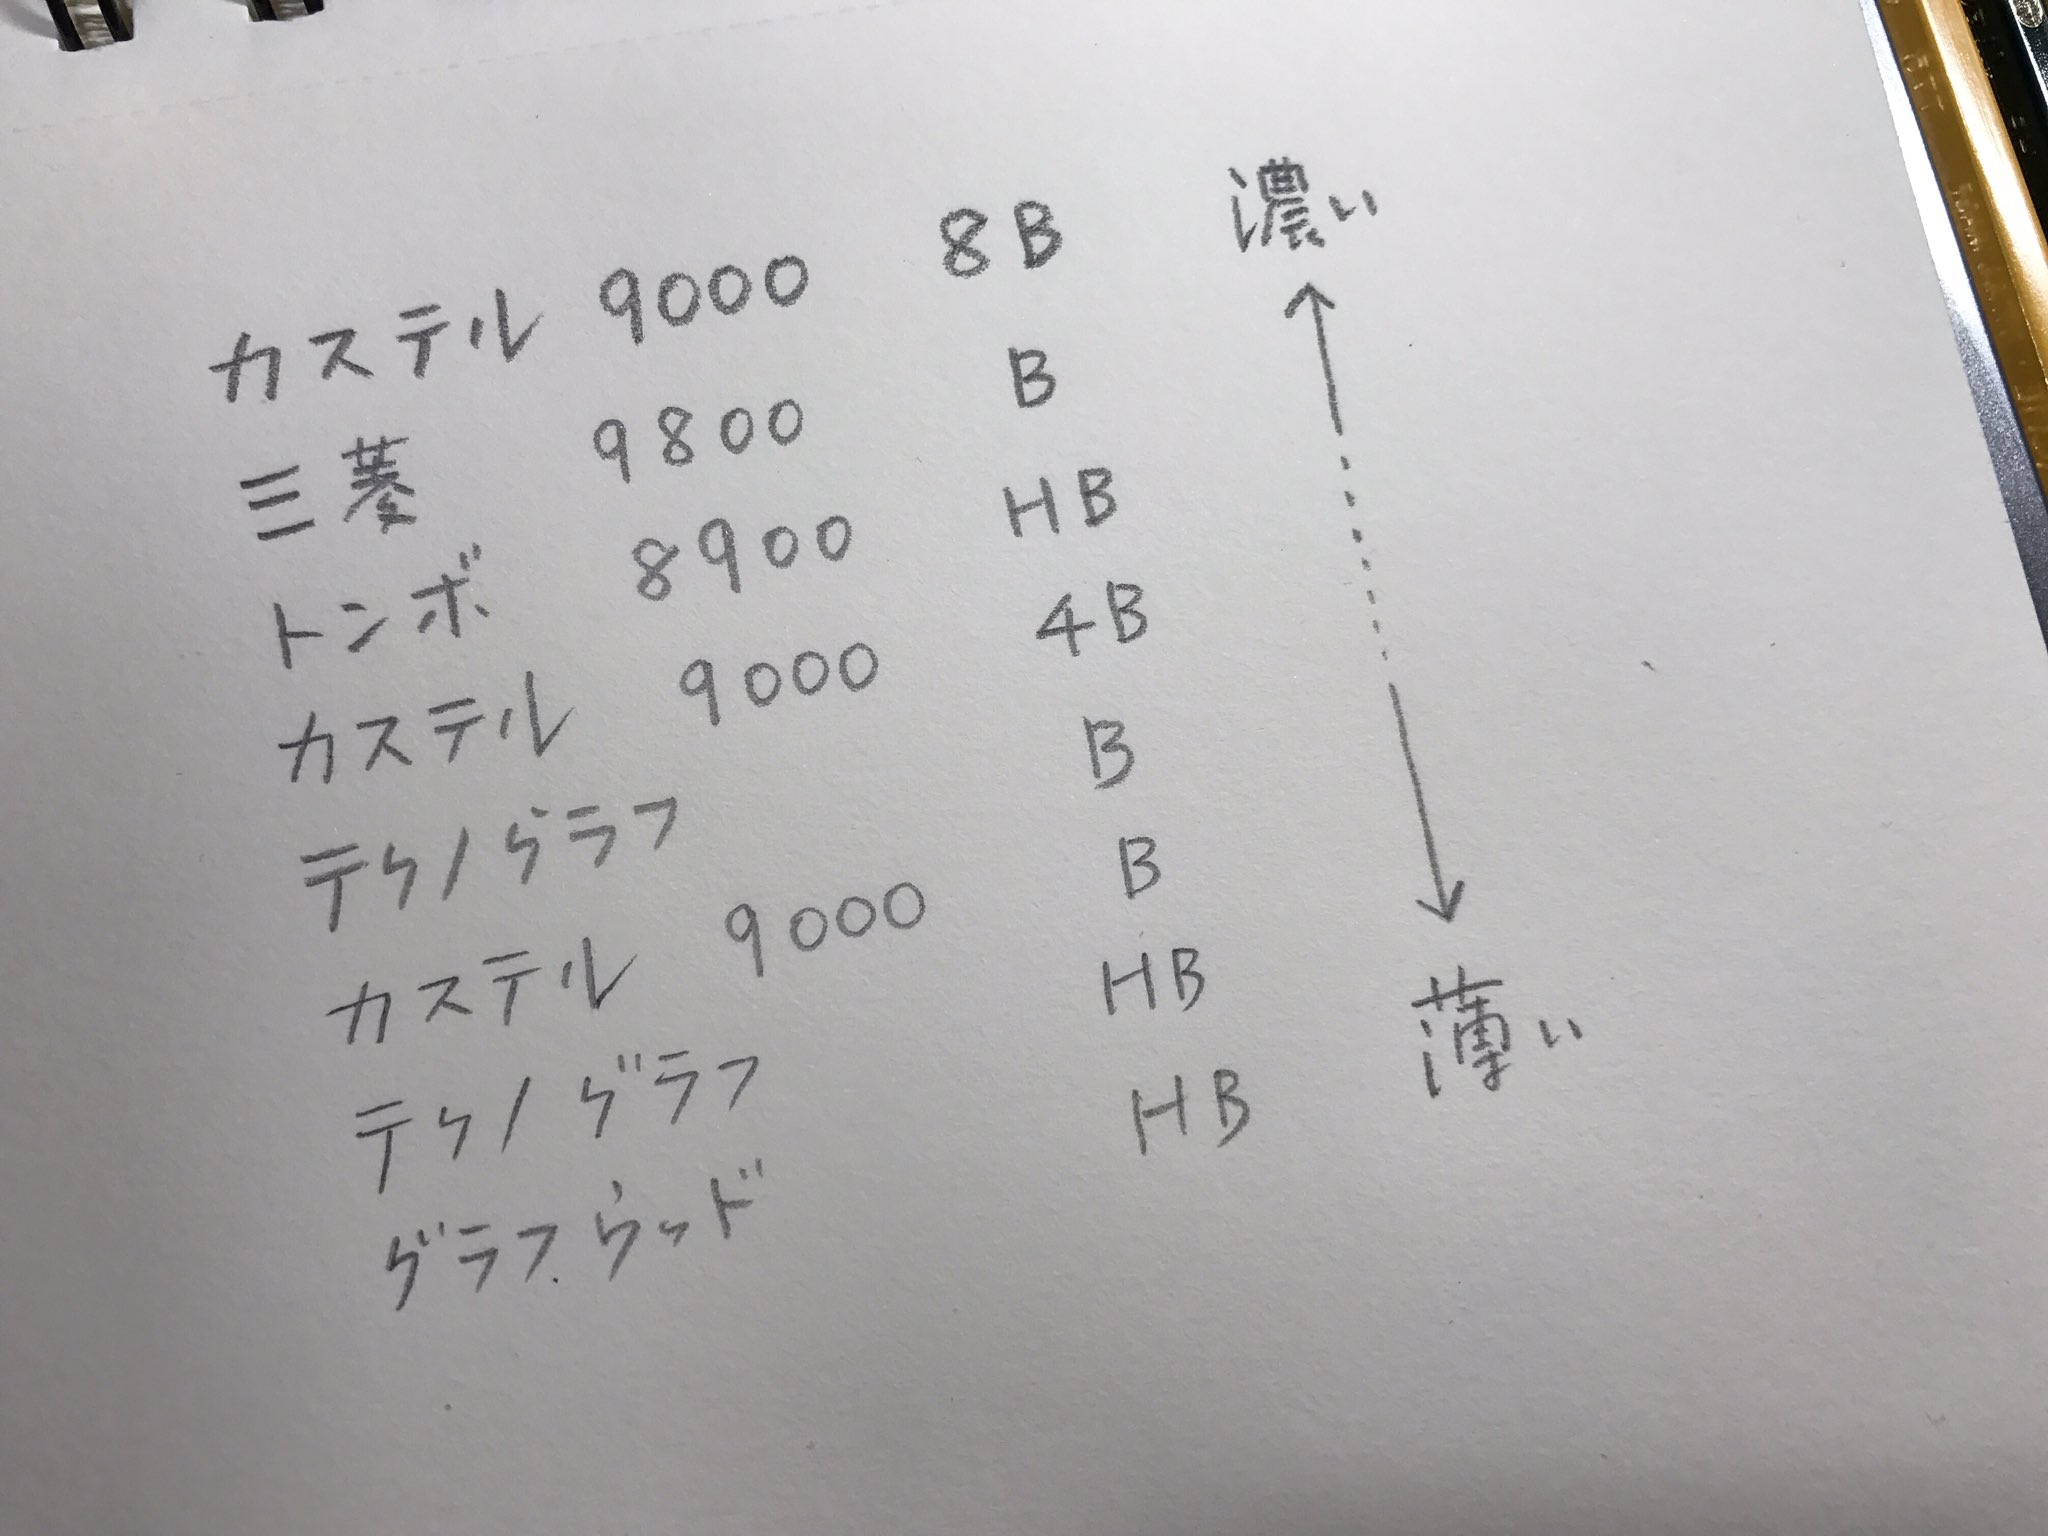 カステル 9000 8B
三菱 9800 B
トンボ 8900 HB
カステル 9000 4B
テクノグラフ B
カステル 9000 B
テクノグラフ HB
グラフウッド HB
濃い
薄い